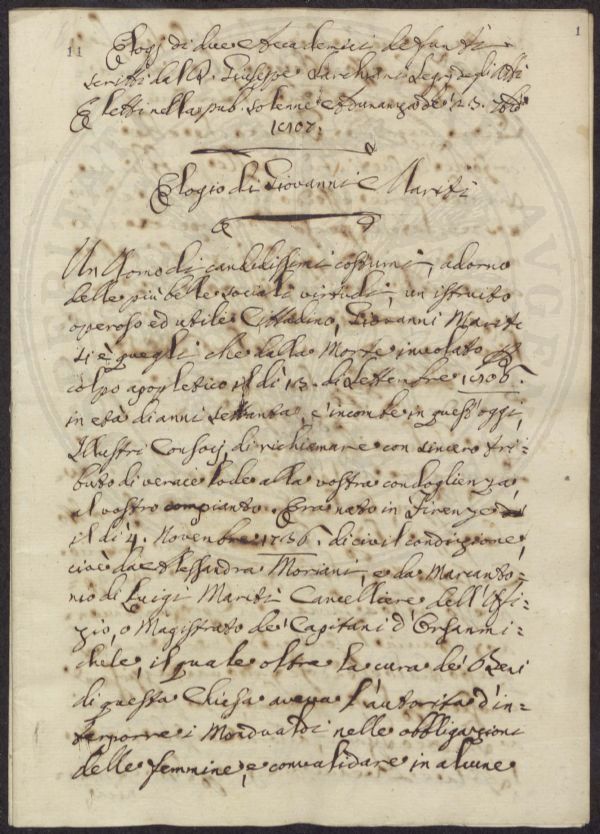 11
1
Elogj di due Accademici defunti
scritti dal D. Giuseppe Sarchiani Seg. degli Atti
E letti nella pub. solenne Adunanza de' 23.
1807.
Elogio di Giovanni Mariti
Un Uomo di candidissimi costumi, adorno
delle più belle sociali virtudi, un istruito
operoso ed utile Cittadino, Giovanni Mariti
si è quegli che dalla Morte involato
colpo apopletico il dì 13. di Settembre 1806.
in età di anni Settanta, e' incombe in quest'oggi,
Illustri Consocj, di richiamare con sincero tri-
buto di verace lode alla vostra condoglienza,
al vostro compianto. Era nato in Firenze
il dì 4. Novembre 1736. di civil condizione,
cioè da Alessandra Moriani, e da Marcanto-
nio di Luigi Mariti Cancelliere dell'Ufi-
zio, o Magistrato de' Capitani d'Orsanmi-
chele, il quale oltre la cura de' Beni
di questa Chiesa aveva l'autorità d'in-
terporre i Mondualdi nelle obbligazioni
delle femmine, e convalidare in alcune